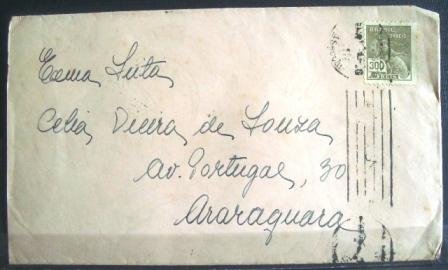 BRASIL
CORREIO
300
RÉIS
Exma Snta
Celia Vieira de Souza
Av. Portugal, 30
Araraquara